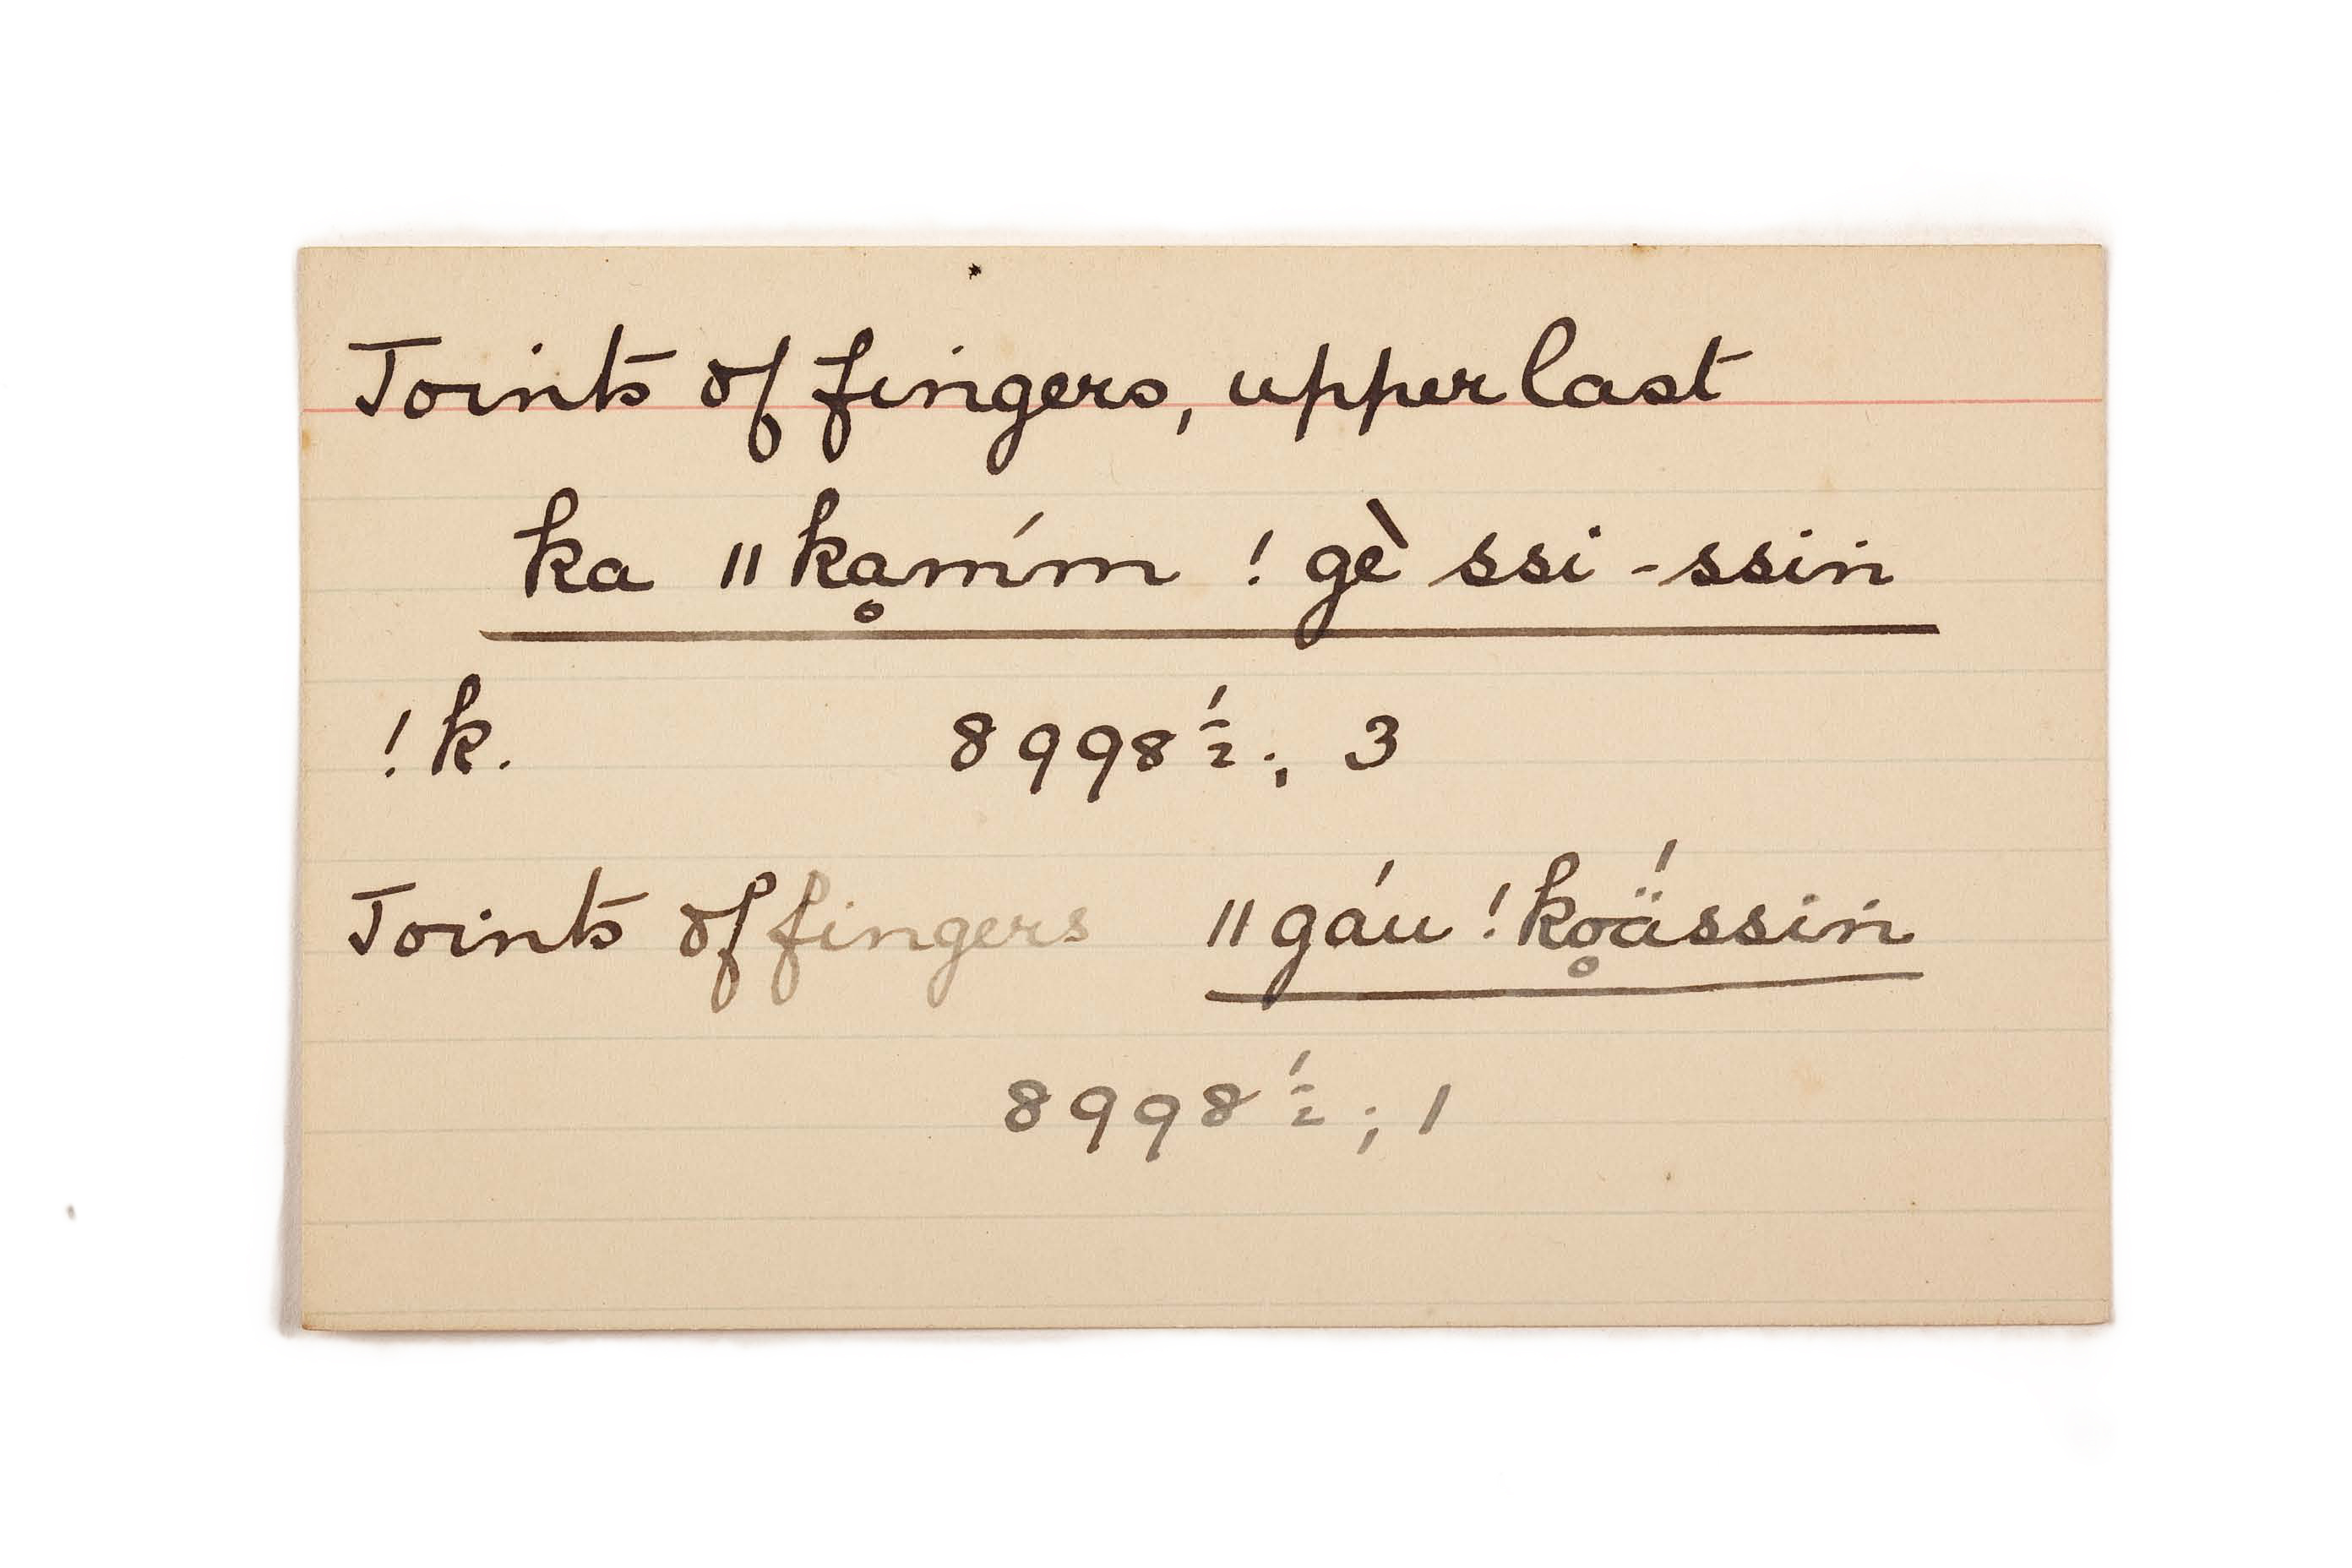 Joints of fingers, upper last
ka ǁkḁmḿm !gè ssi-ssiṅ
!k. 8998½; 3
Joints of fingers ǁgáu !ko̥ä́ssiṅ
8998½; 1